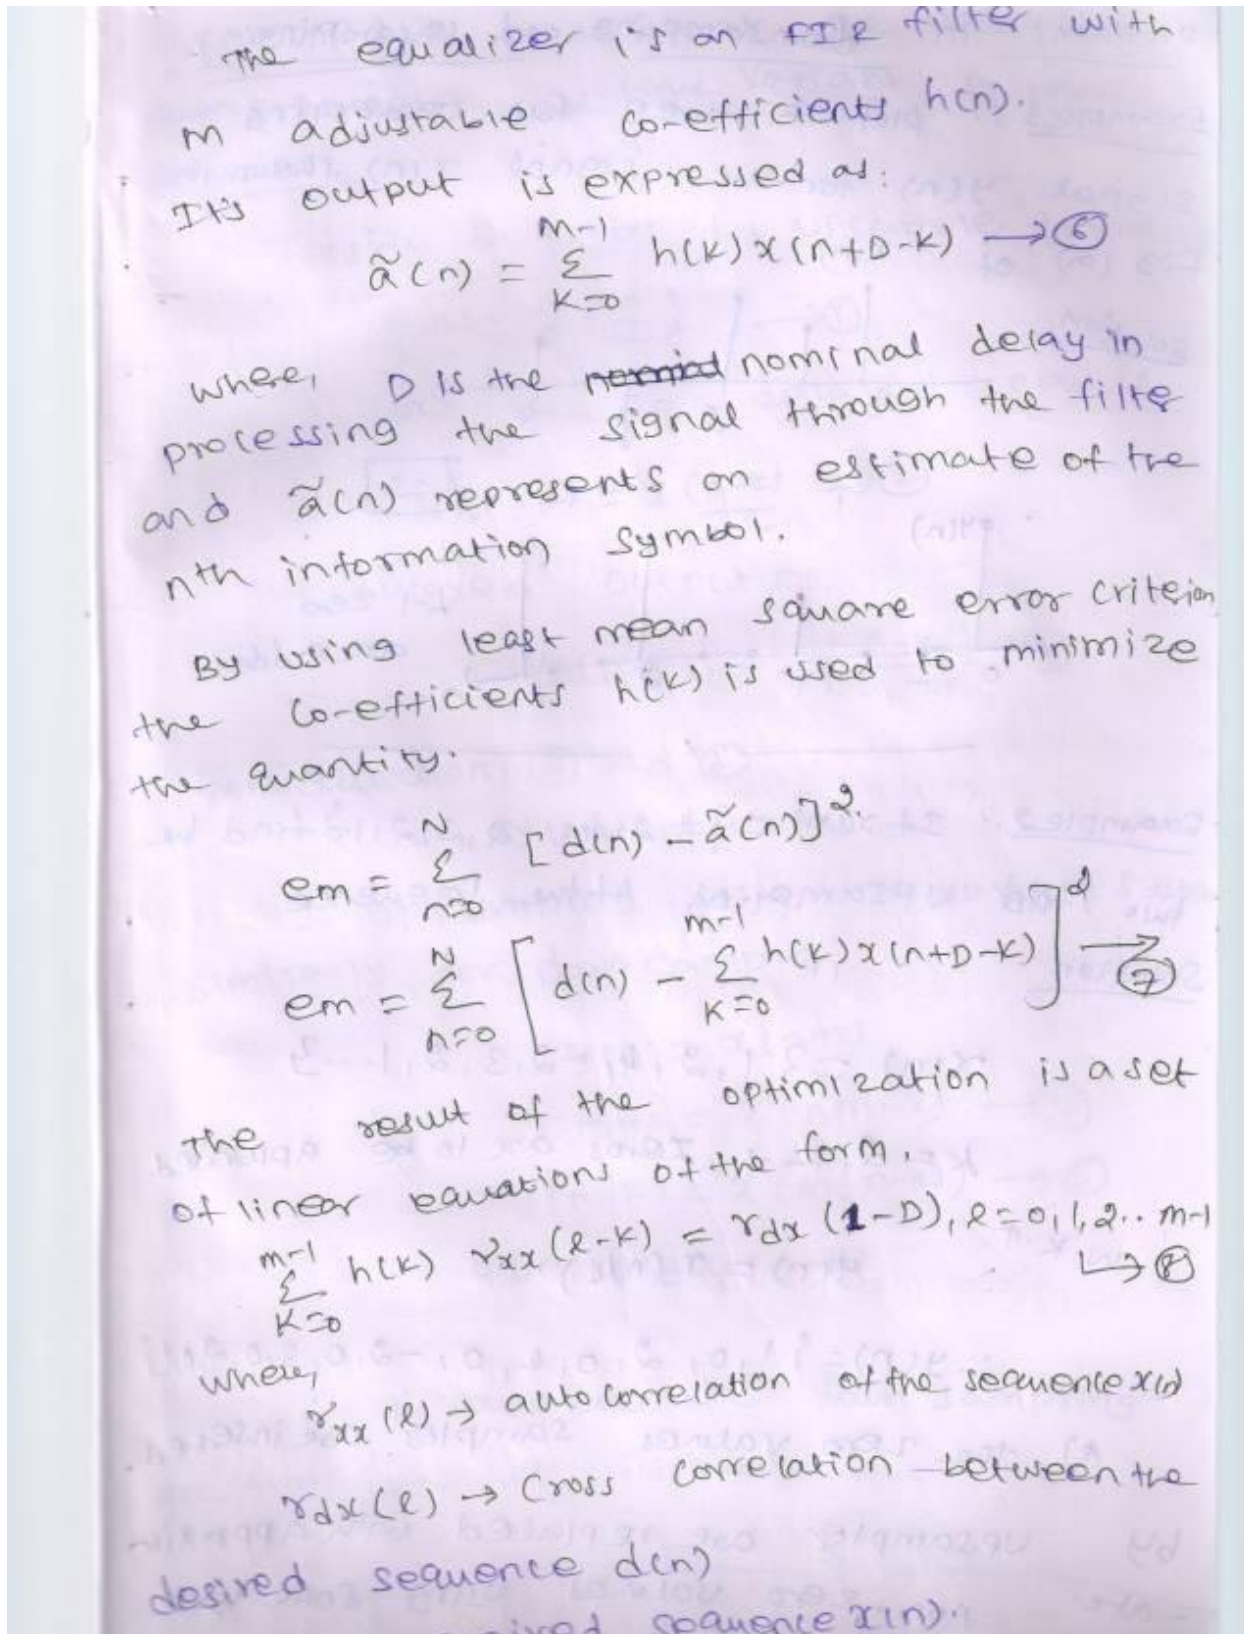 The equalizer is an FIR filter with
M adjustable co-efficients h(n).
It's output is expressed as:
ã(n) = M-1 Σ K=0 h(k) x(n+D-k) → ⑥
where, D is the nominal delay in
processing the signal through the filter
and ã(n) represents an estimate of the
nth information symbol.
By using least mean square error criteion
the co-efficients h(k) is used to minimize
the quantity.
em = N Σ n=0 [d(n) - ã(n)]²
em = N Σ n=0 [d(n) - m-1 Σ K=0 h(k) x(n+D-k)]² → ⑦
The result of the optimization is a set
of linear equations of the form.
m-1 Σ K=0 h(k) rxx(l-k) = rdx(1-D), l=0,1,2.. m-1
↳ ⑧
where,
rxx(l) → autocorrelation of the sequence x(n)
rdx(l) → cross correlation between the
desired sequence d(n)
sequence x(n).